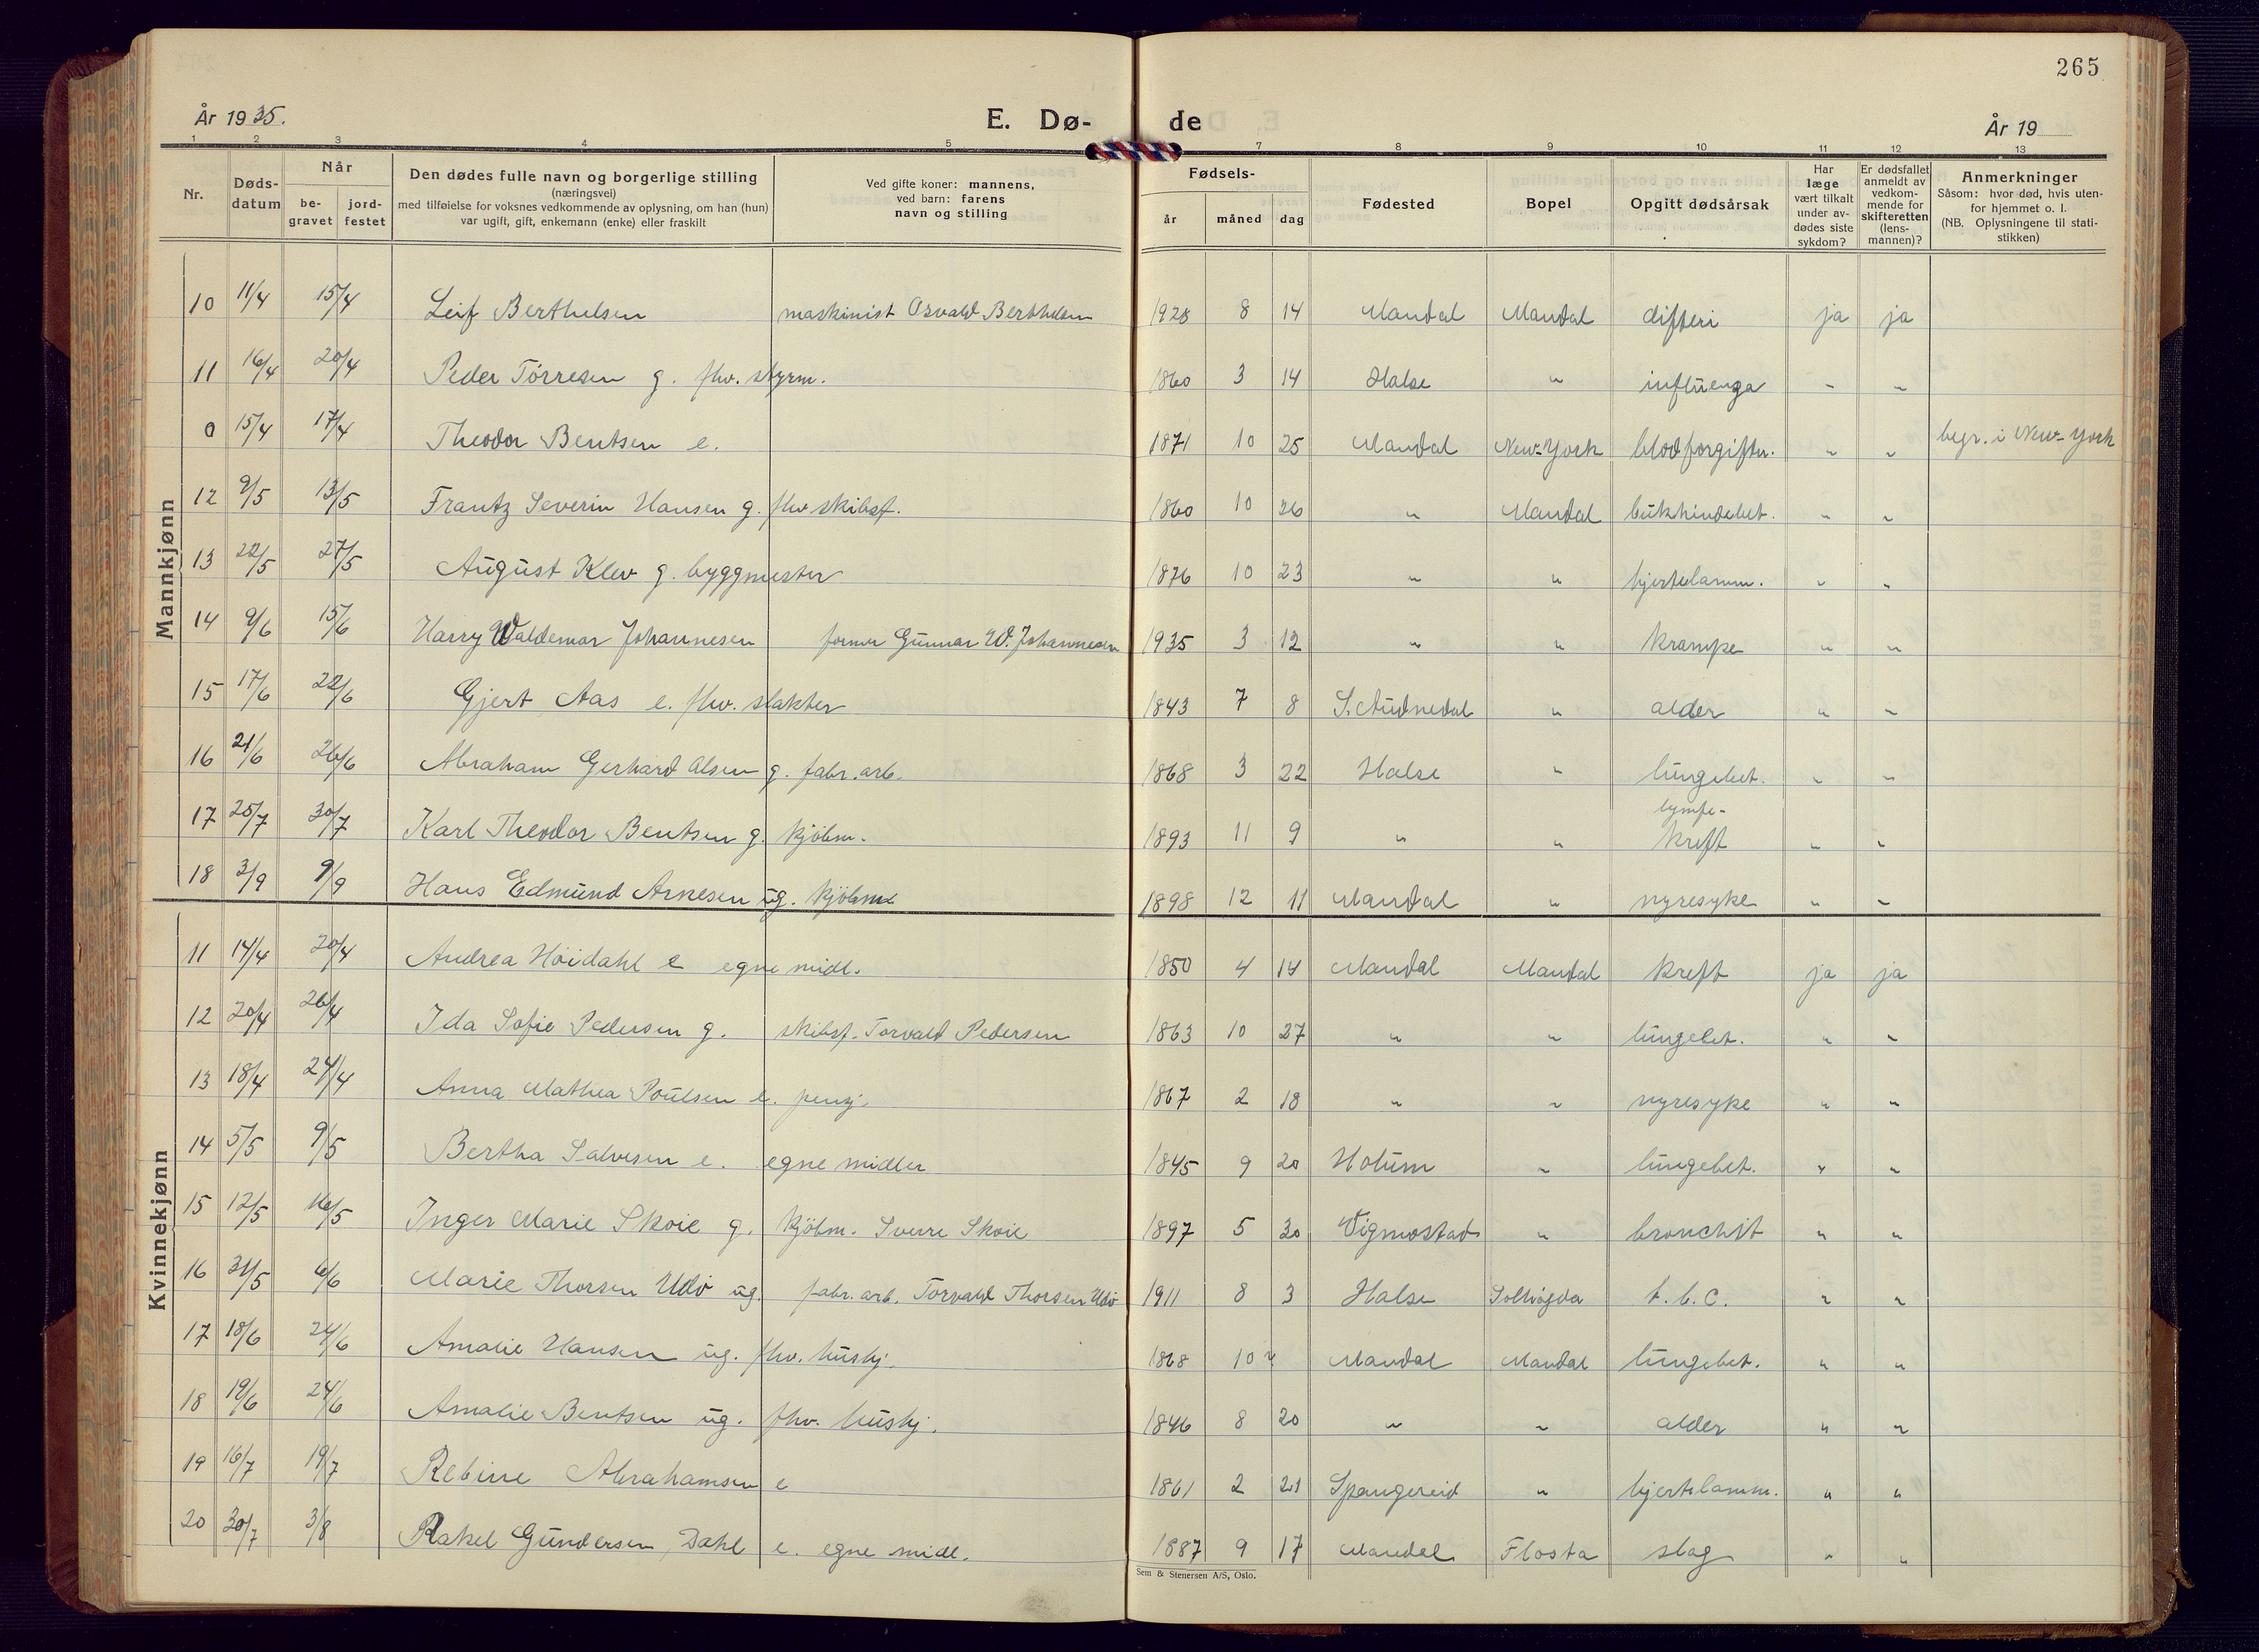 265
År 1935.
E. Dø-
de
År 19
1 2 3 4 5 7 8 9 10 11 12 13
Nr.
Døds-
datum
Når
be-
gravet
jord-
festet
Den dødes fulle navn og borgerlige stilling
(næringsvei)
med tilføielse for voksnes vedkommende av oplysning, om han (hun)
var ugift, gift, enkemann (enke) eller fraskilt
Ved gifte koner: mannens,
ved barn: farens
navn og stilling
Fødsels-
år måned dag
Fødested
Bopel
Opgitt dødsårsak
Har
læge
vært tilkalt
under av-
dødes siste
sykdom?
Er dødsfallet
anmeldt av
vedkom-
mende for
skifteretten
(lens-
mannen)?
Anmerkninger
Såsom: hvor død, hvis uten-
for hjemmet o. l.
(NB. Oplysningene til stati-
stikken)
Mannkjønn
10 11/4 15/4 Leif Berthelsen maskinist Osvald Berthelsen 1928 8 14 Mandal Mandal difteri ja ja
11 16/4 20/4 Peder Törresen g. fhv. styrm. 1860 3 14 Halse " influenza " "
0 15/4 17/4 Theodor Bentsen e. 1871 10 25 Mandal New-York blodforgiftn. " " begr. i New-York
12 9/5 13/5 Frantz Severin Hansen g. fhv skibsf. 1860 10 26 " Mandal bukhindebet. " "
13 22/5 27/5 August Klev g. byggmester 1876 10 23 " " hjertelamm. " "
14 9/6 15/6 Harry Waldemar Johannesen former Gunnar W. Johannesen 1935 3 12 " " krampe " "
15 17/6 22/6 Gjert Aas e. fhv. slakter 1843 7 8 S. Audnedal " alder " "
16 21/6 26/6 Abraham Gerhard Olsen g. fabr. arb. 1868 3 22 Halse " lungebet. " "
17 25/7 30/7 Karl Theodor Bentsen g. kjöbm. 1893 11 9 " " lymfe-
kreft " "
18 3/9 9/9 Hans Edmund Arnesen ug. kjöbm. 1898 12 11 Mandal " nyresyke " "
Kvinnekjønn
11 14/4 20/4 Andrea Höidahl e egne midl. 1850 4 14 Mandal Mandal kreft ja ja
12 20/4 26/4 Ida Sofie Pedersen g. skibsf. Torvald Pedersen 1863 10 27 " " lungebet. " "
13 18/4 24/4 Anna Mathea Poulsen e. penzj. 1867 2 18 " " nyresyke " "
14 5/5 9/5 Bertha Salvesen e. egne midler 1845 9 20 Holum " lungebet. " "
15 12/5 16/5 Inger Marie Skoie g. kjöbm. Sverre Skoie 1897 5 30 Vigmostad " bronchit " "
16 31/5 6/6 Marie Thorsen Udö ug. fabr. arb. Torvald Thorsen Udö 1911 8 3 Halse Solhögda t. b. c. " "
17 18/6 24/6 Amalie Hansen ug. fhv. hushj. 1868 10 Mandal Mandal lungebet. " "
18 19/6 24/6 Amalie Bentsen ug. fhv. hushj. 1846 8 20 " " alder " "
19 16/7 19/7 Rebinne Abrahamsen e 1861 2 21 Spangereid " hjertelamm. " "
20 30/7 3/8 Rakel Gundersen Dahl e. egne midl. 1887 9 17 Mandal Flosta slag " "
Sem & Stenersen A/S, Oslo.